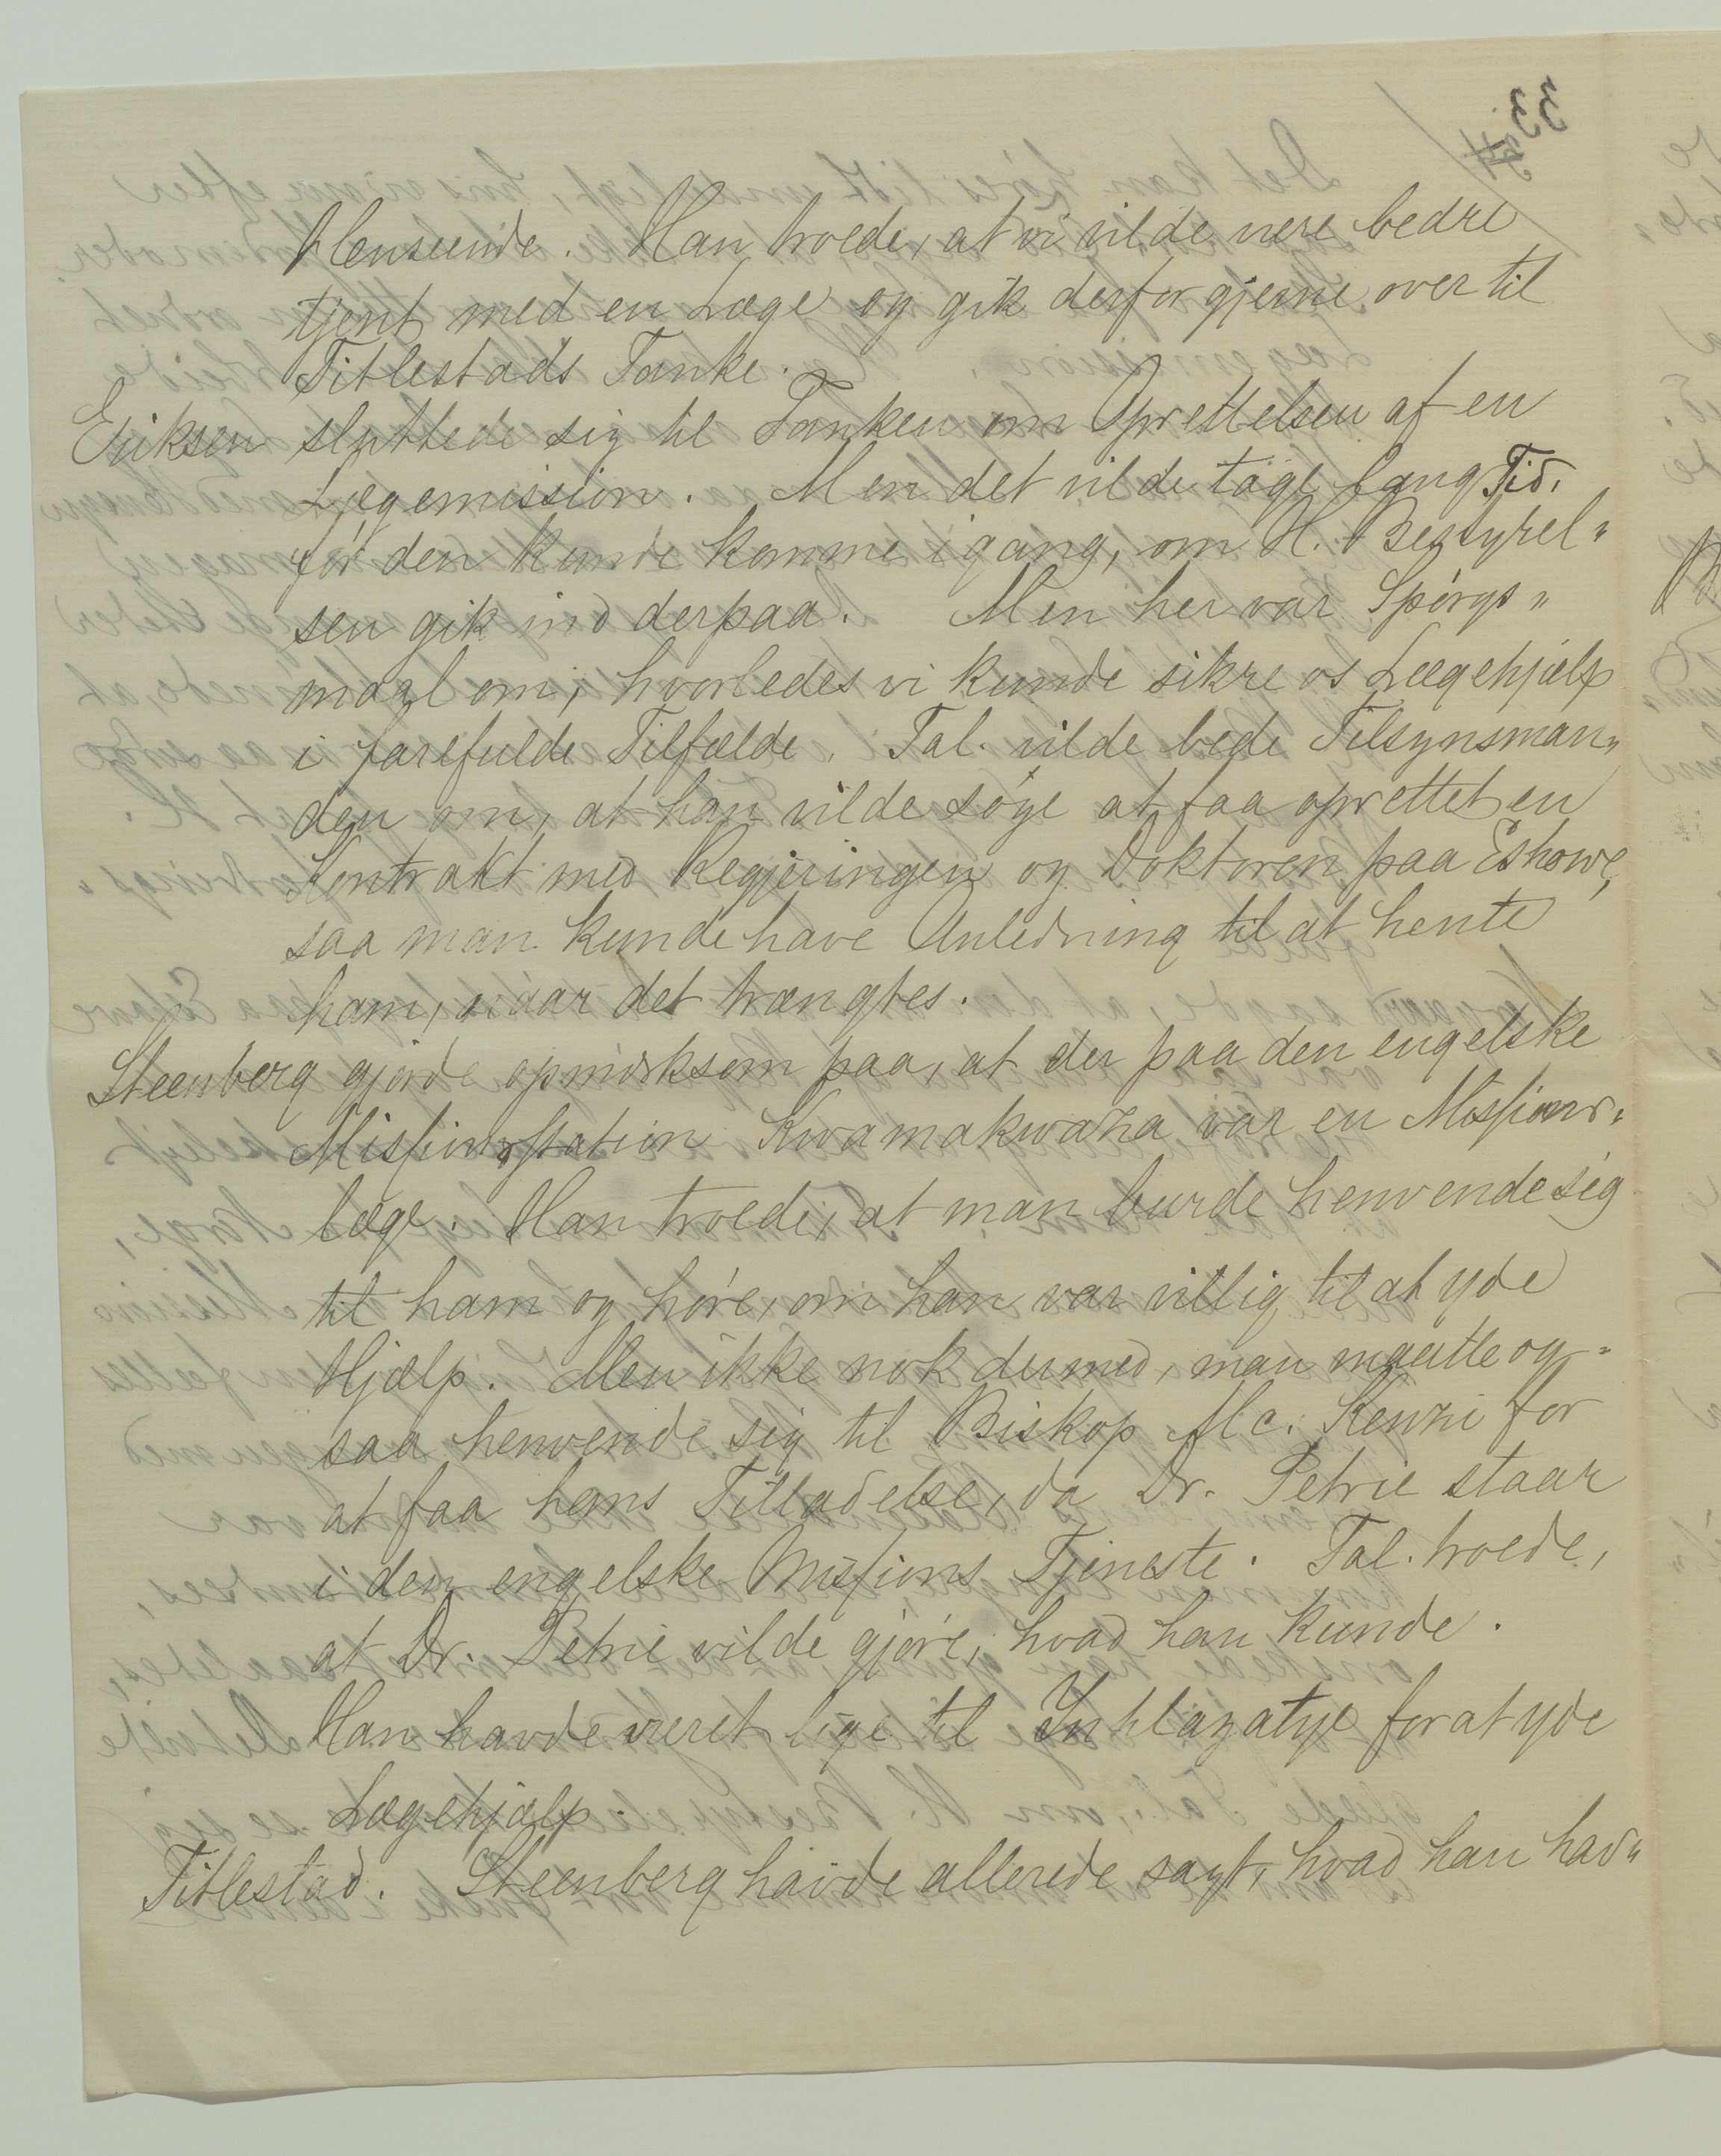 33
Henseende. Han troede, at vi vilde være bedre
tjent med en Læge og gik derfor gjerne over til
Titlestads Tanke.
Eriksen sluttede sig til Tanken om Oprettelsen af en
Lægemission. Men det vilde tage lang Tid,
før den kunde komme igang, om H. Bestyrel„
sen gik ind derpaa. Men her var Spørgs„
maal om, hvorledes vi kunde sikre os Lægehjælp
i farefulde Tilfælde. Tal. vilde bede Tilsynsman„
den om, at han vilde søge at faa oprettet en
Kontrakt med Regjeringen og Doktoren paa Eshowe,
saa man kunde have Anledning til at hente
ham, naar det trængtes.
Steenberg gjorde opmærksom paa, at der paa den engelske
Missionsstation Kwamakwaza var en Missions„
læge. Han troede, at man burde henvende sig
til ham og høre, om han var villig til at yde
Hjælp. Men ikke nok dermed, man maatte og„
saa henvende sig til Biskop Mc. Kenzi for
at faa hans Tilladelse, da Dr. Petrie staar
i den engelske Missions Tjeneste. Tal. troede,
at Dr. Petrie vilde gjøre, hvad han kunde.
Han havde været lige til Inhlazatye for at yde
Lægehjælp.
Titlestad. Steenberg havde allerede sagt, hvad han hav„